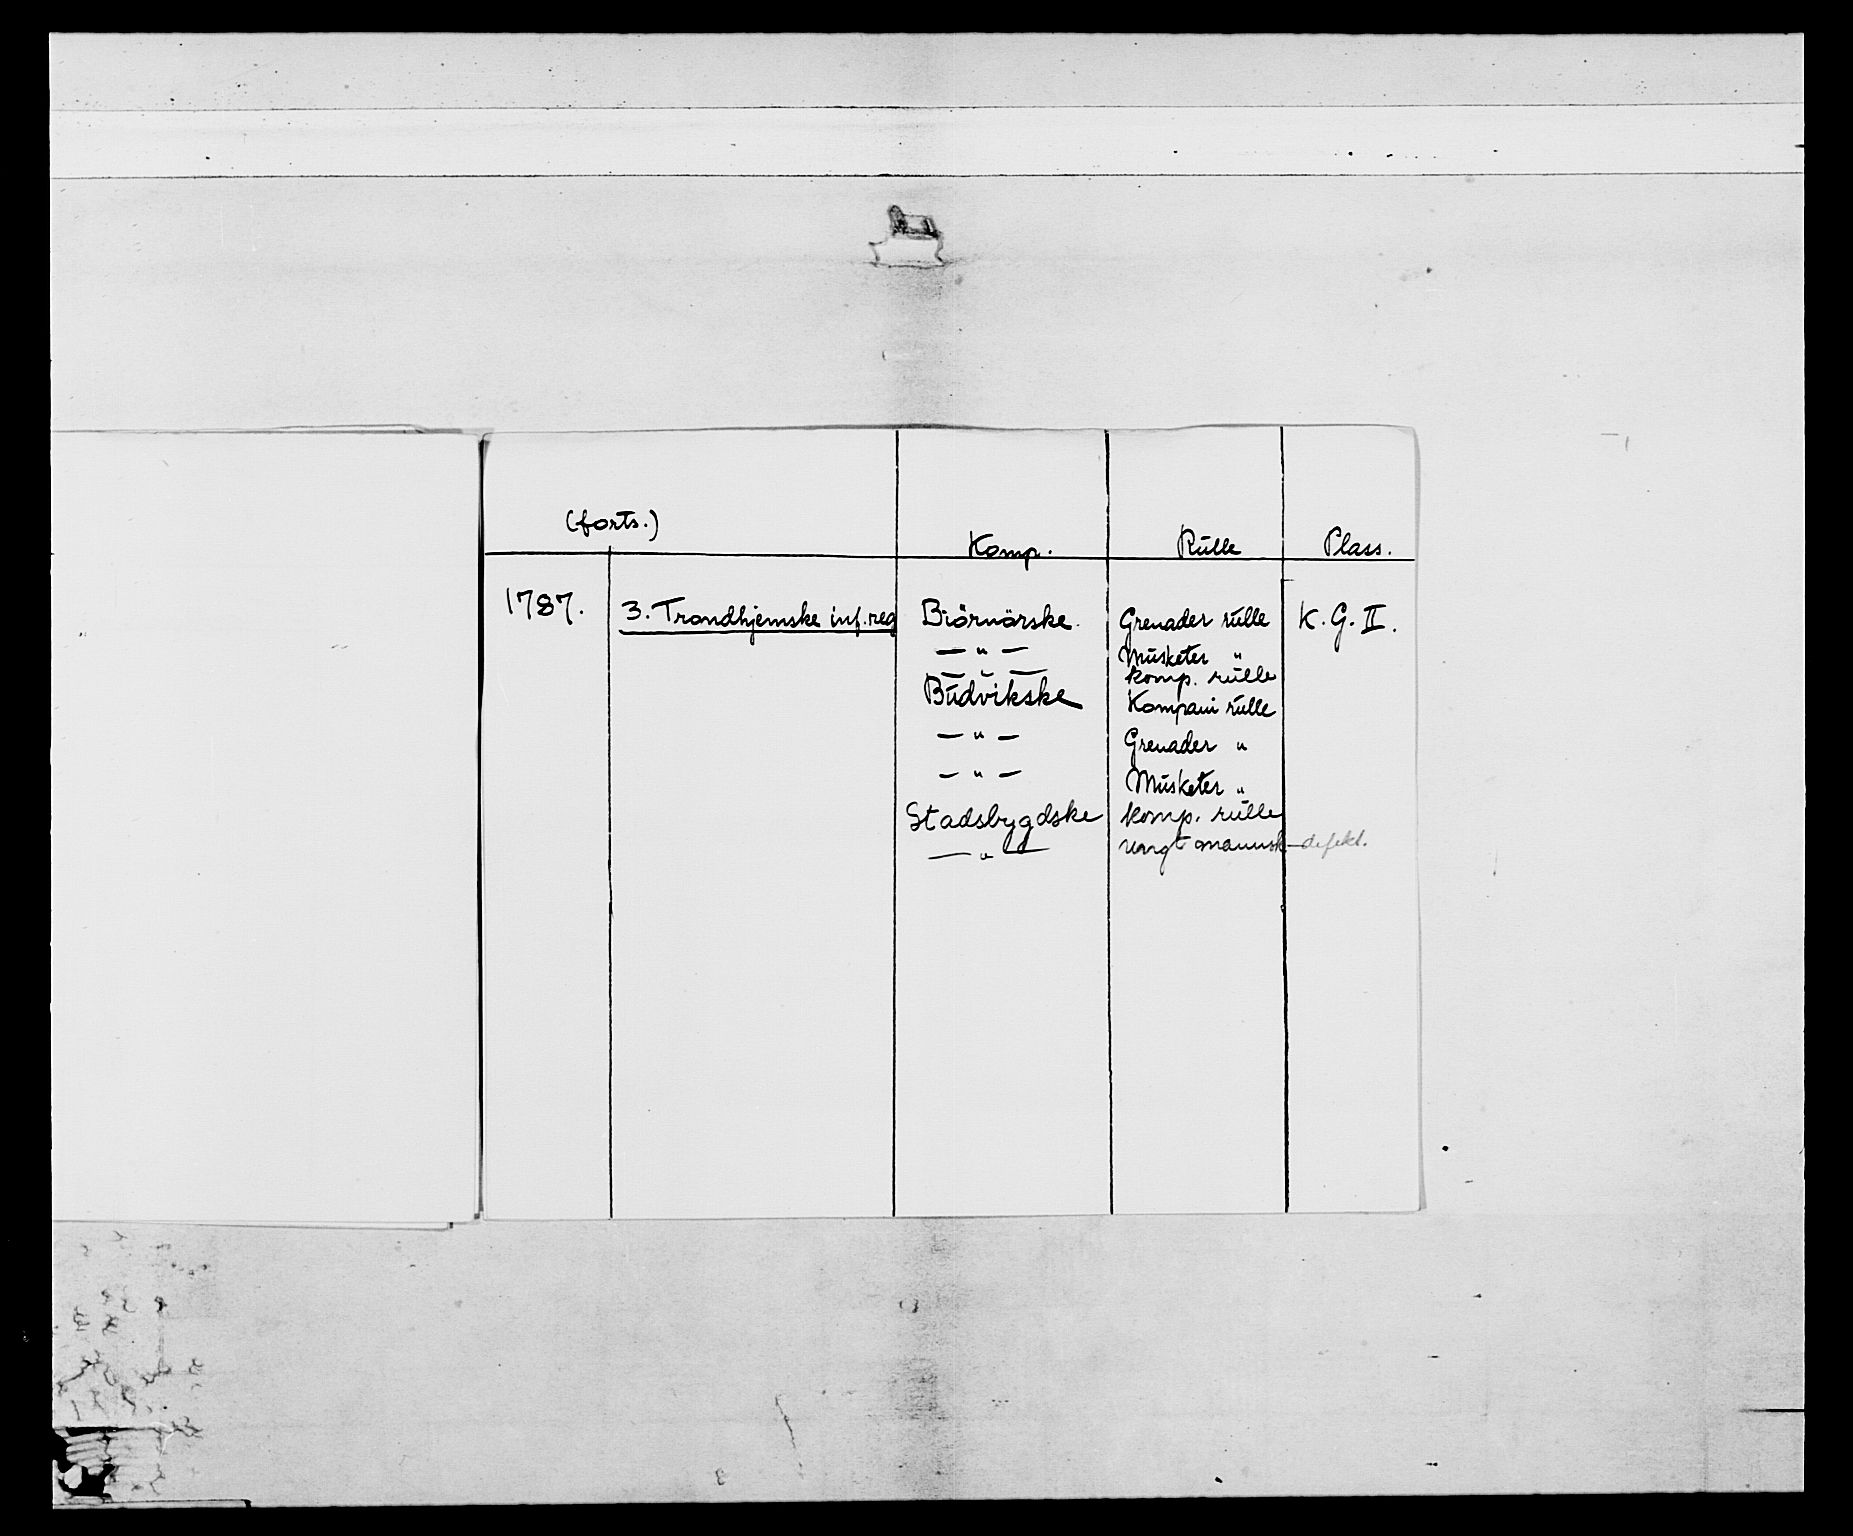 (forts.)
Komp. Rulle Plass.
1787. 3. Trondhjemske inf. reg Biörnörske. Grenader rulle K. G. II.
— " — Musketer "
— " — komp. rulle
Budvikske Kompani rulle
— " — Grenader "
— " — Musketer "
Stadsbygdske komp. rulle
— " — ungt mannsk — defekt.